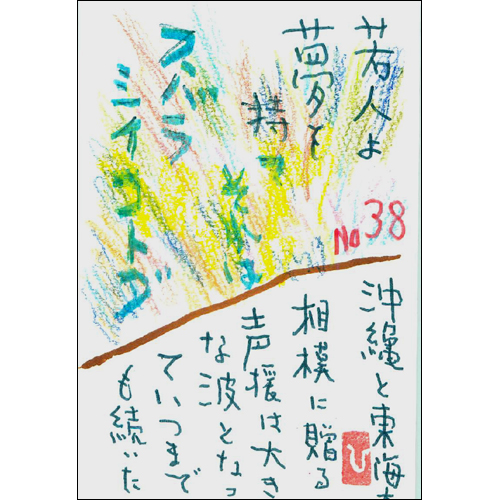 若人よ
夢を
持て
それは
スバラ
シイコトダ
No38
沖縄と東海大
相模に贈る
声援は大き
な波となっ
ていつまで
も続いた
ひ